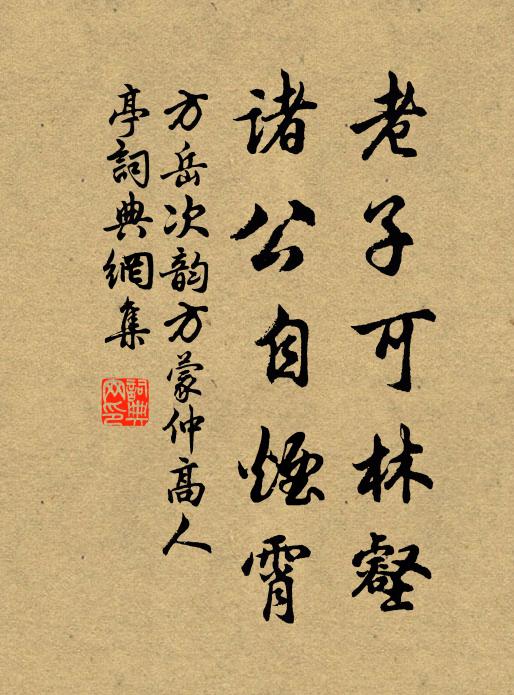 老子可林壑
諸公自煙霄
方岳次韵方蒙仲高人
亭詞典網集